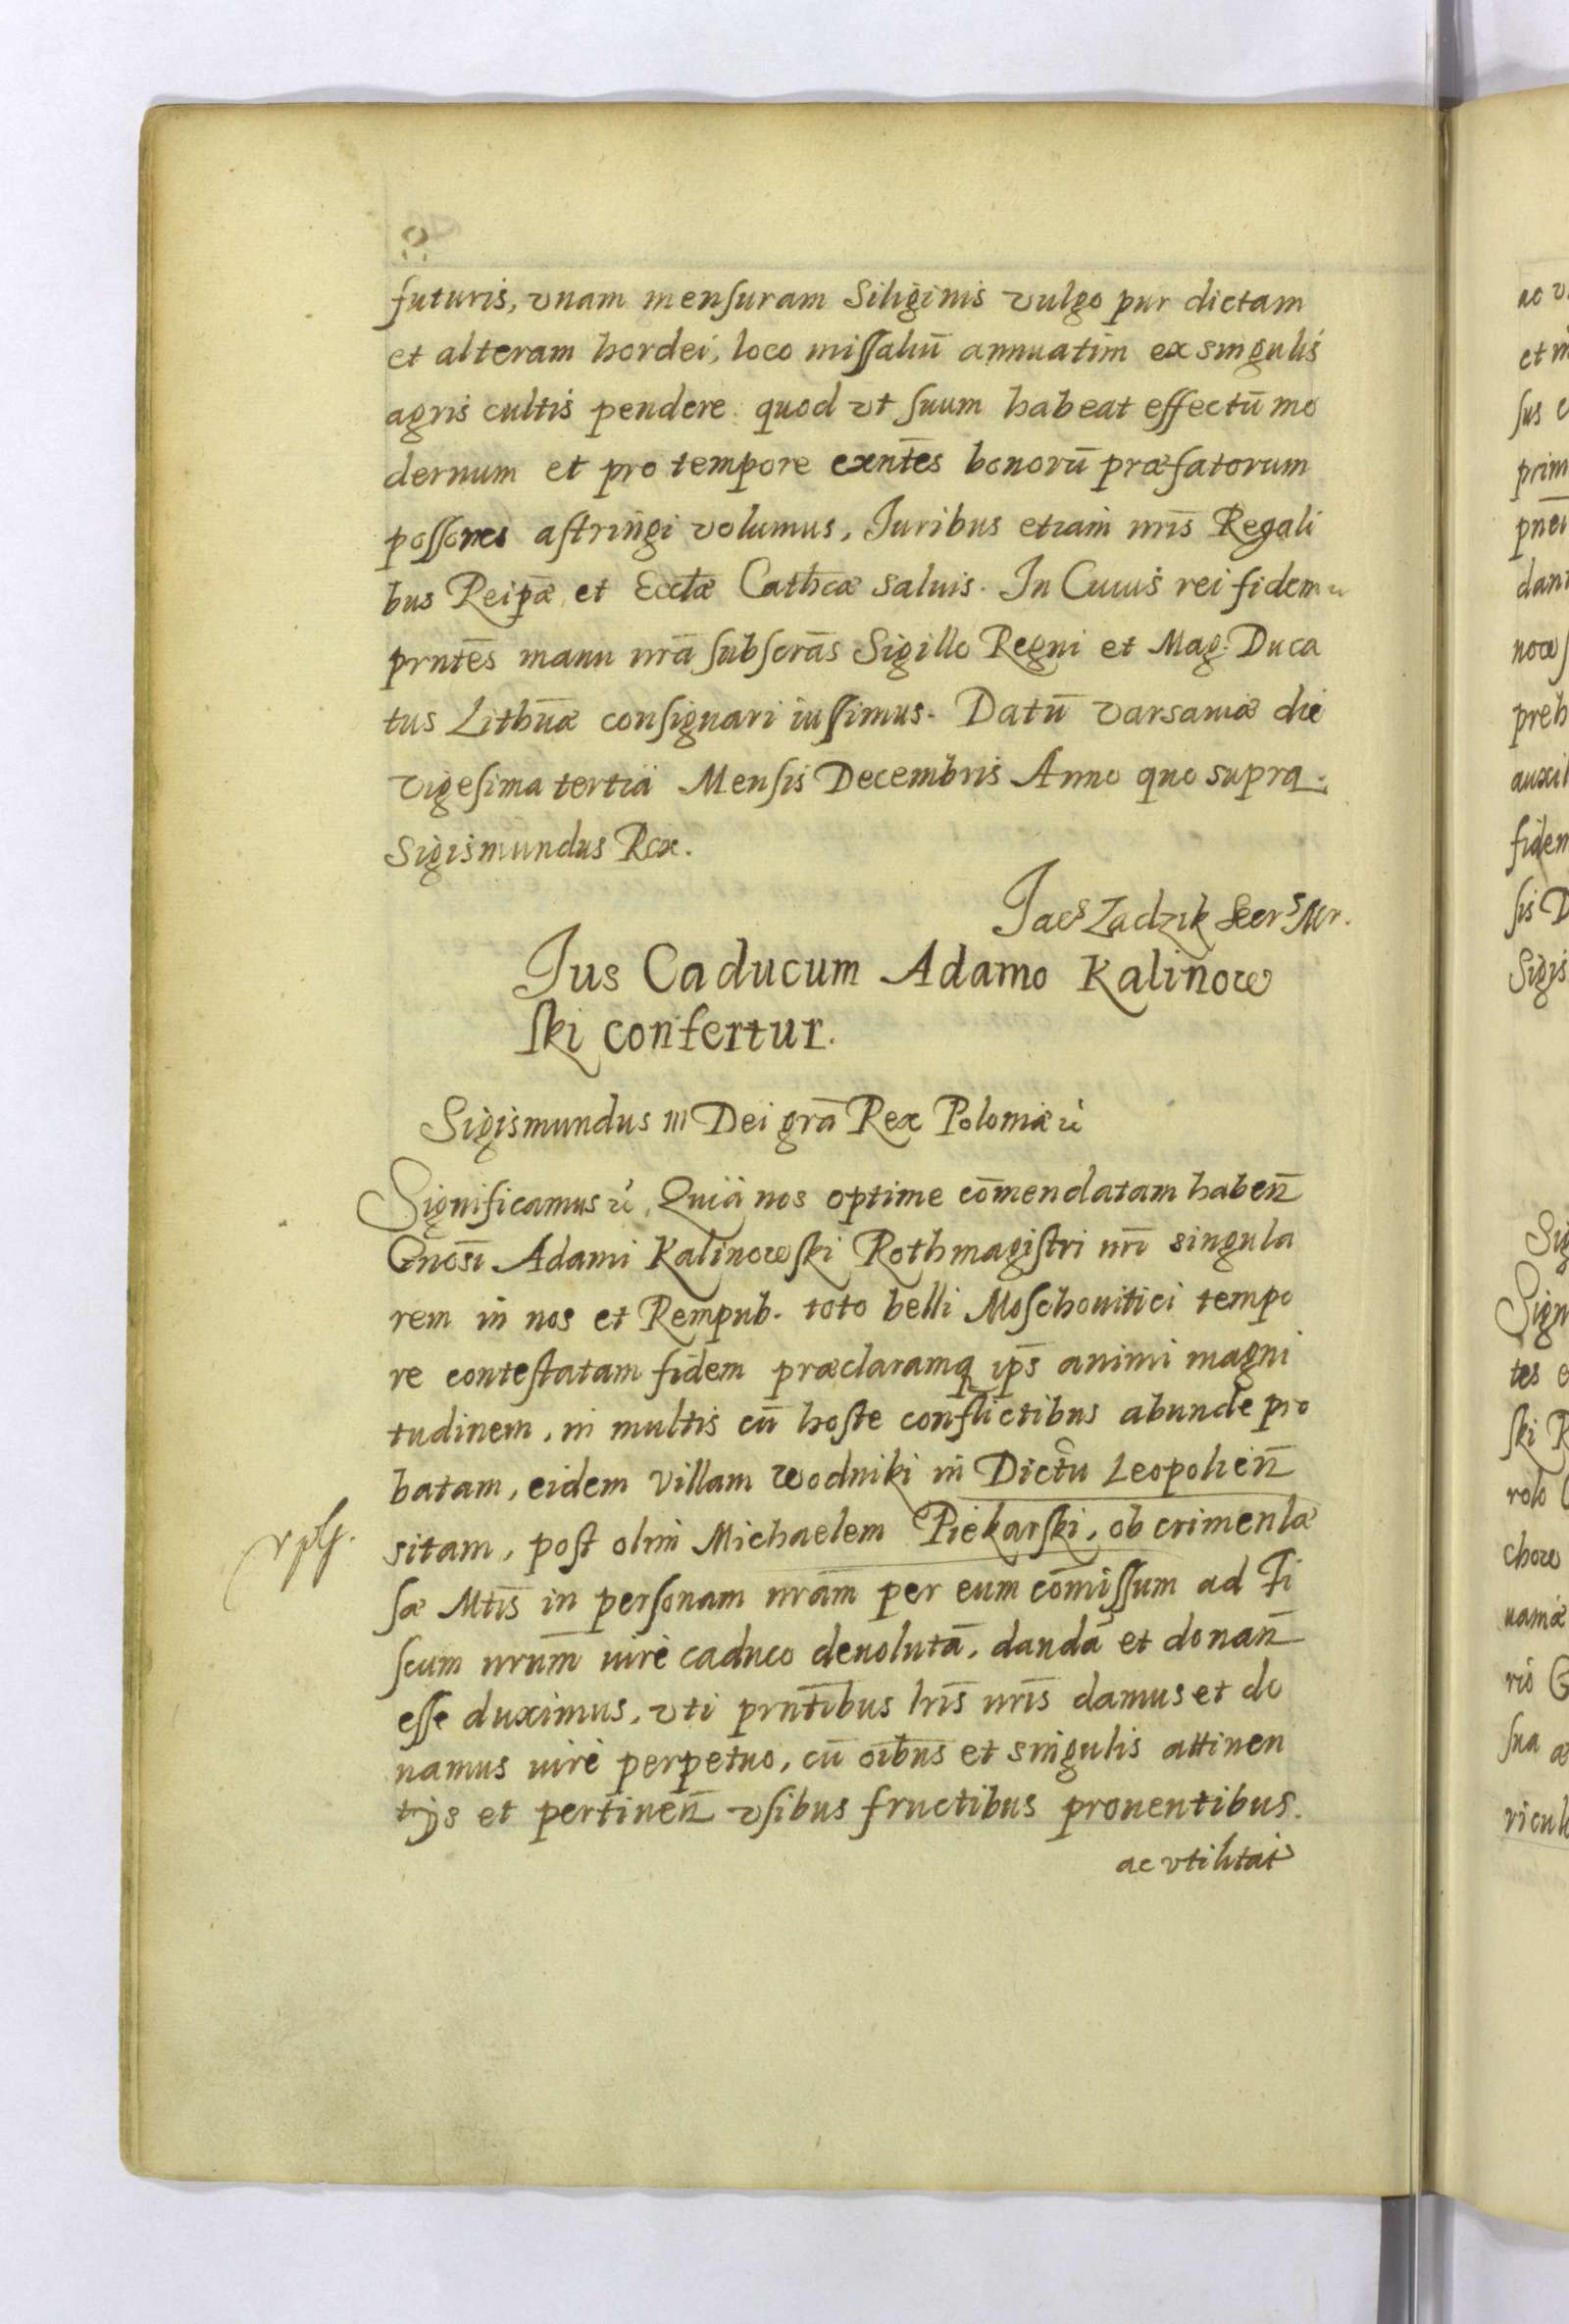 futuris, vnam mensuram Siliginis vulgo pur dictam
et alteram hordei, loco missaliū annuatim ex singulis
agris cultis pendere. quod vt suum habeat effectū mo
dernum et pro tempore exnt̄es bonorū præfatorum
possores astringi volumus, Iuribus etiam nr̄is Regali
bus Reip̄æ et Eccl̄æ Cath̄cæ saluis. In Cuius rei fidem
prnt̄es manu nr̄a subscrās Sigillo Regni et Mag. Duca
tus Lith̄uæ consignari iussimus. Datū Varsauiæ die
vigesima tertia Mensis Decembris Anno quo supra.
Sigismundus Rex.
Jacs Zadzik Secrs Mr.
Jus Caducum Adamo Kalinow
ski confertur.
Sigismundus III Dei grā Rex Poloniæ
Significamus, Quia nos optime cōmendatam haben̄
Gnosī Adami Kalinowski Rothmagistri nr̄i singula
rem in nos et Rempub. toto belli Moschouitici tempo
re contestatam fidem præclaramq ip̄s animi magni
tudinem, in multis cū hoste conflictibus abunde pro
batam, eidem villam Wodniki in Dict̄u Leopolien̄
sitam, post olim Michaelem Piekarski, ob crimen læ
sæ Mt̄is in personam nrām per eum cōmissum ad Fi
scum nrūm iure caduco deuolutā, dandā et donan̄
esse duximus, vti prnt̄ibus lr̄is nr̄is damus et do
namus iure perpetuo, cū oībus et singulis attinen
tijs et pertinen̄ vsibus fructibus prouentibus.
ac vtilitat